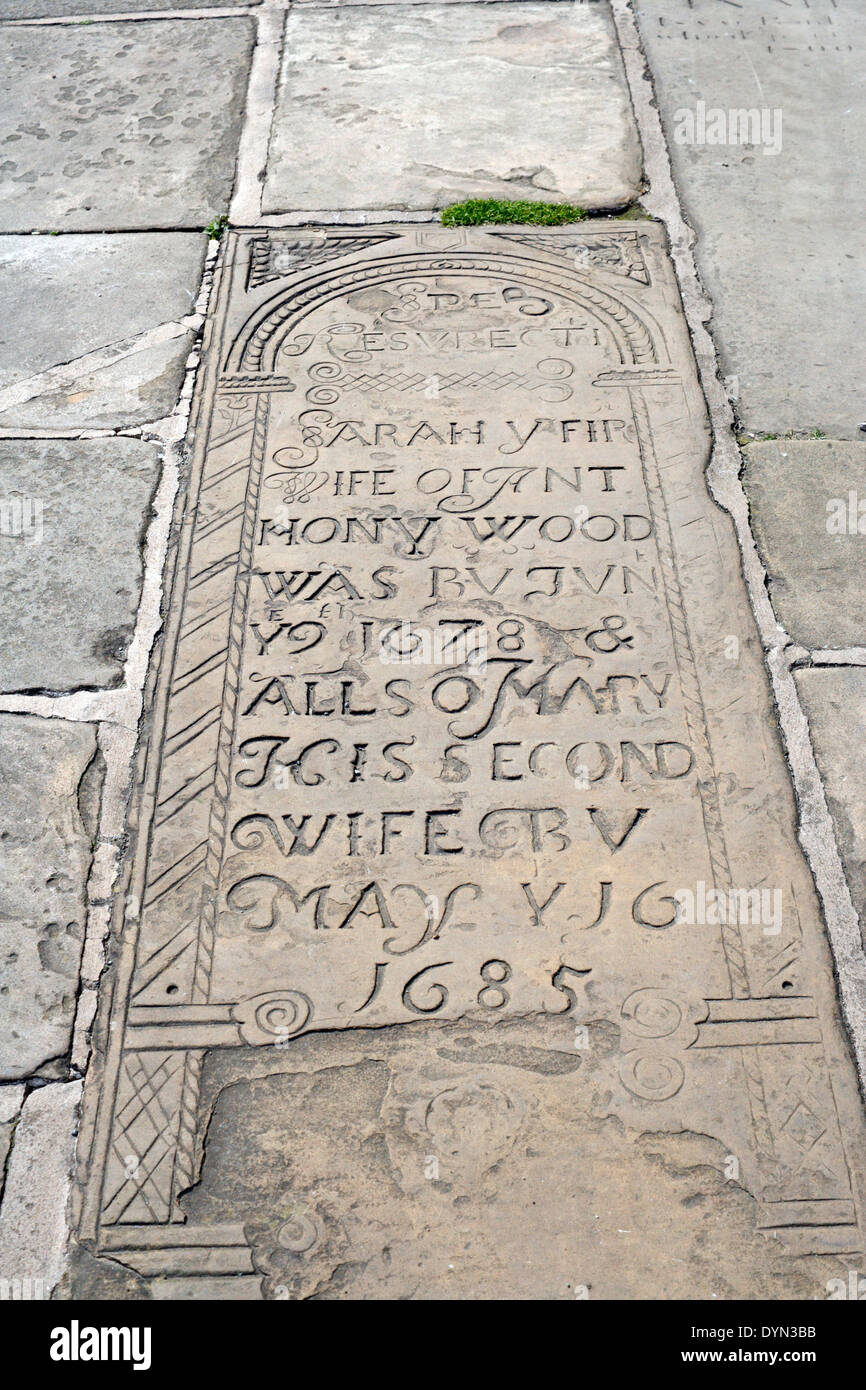 SPES
RESVRECTI
SARAH Yᵉ FIR
WIFE OF ANT
HONY WOOD
WAS BV JVNᴱ
Yᴱ 9 1678 &
ALLSO MARY
HIS SECOND
WIFE BV
MAY Y 16
1685
alamy
alamy
Image ID: DYN3BB
www.alamy.com